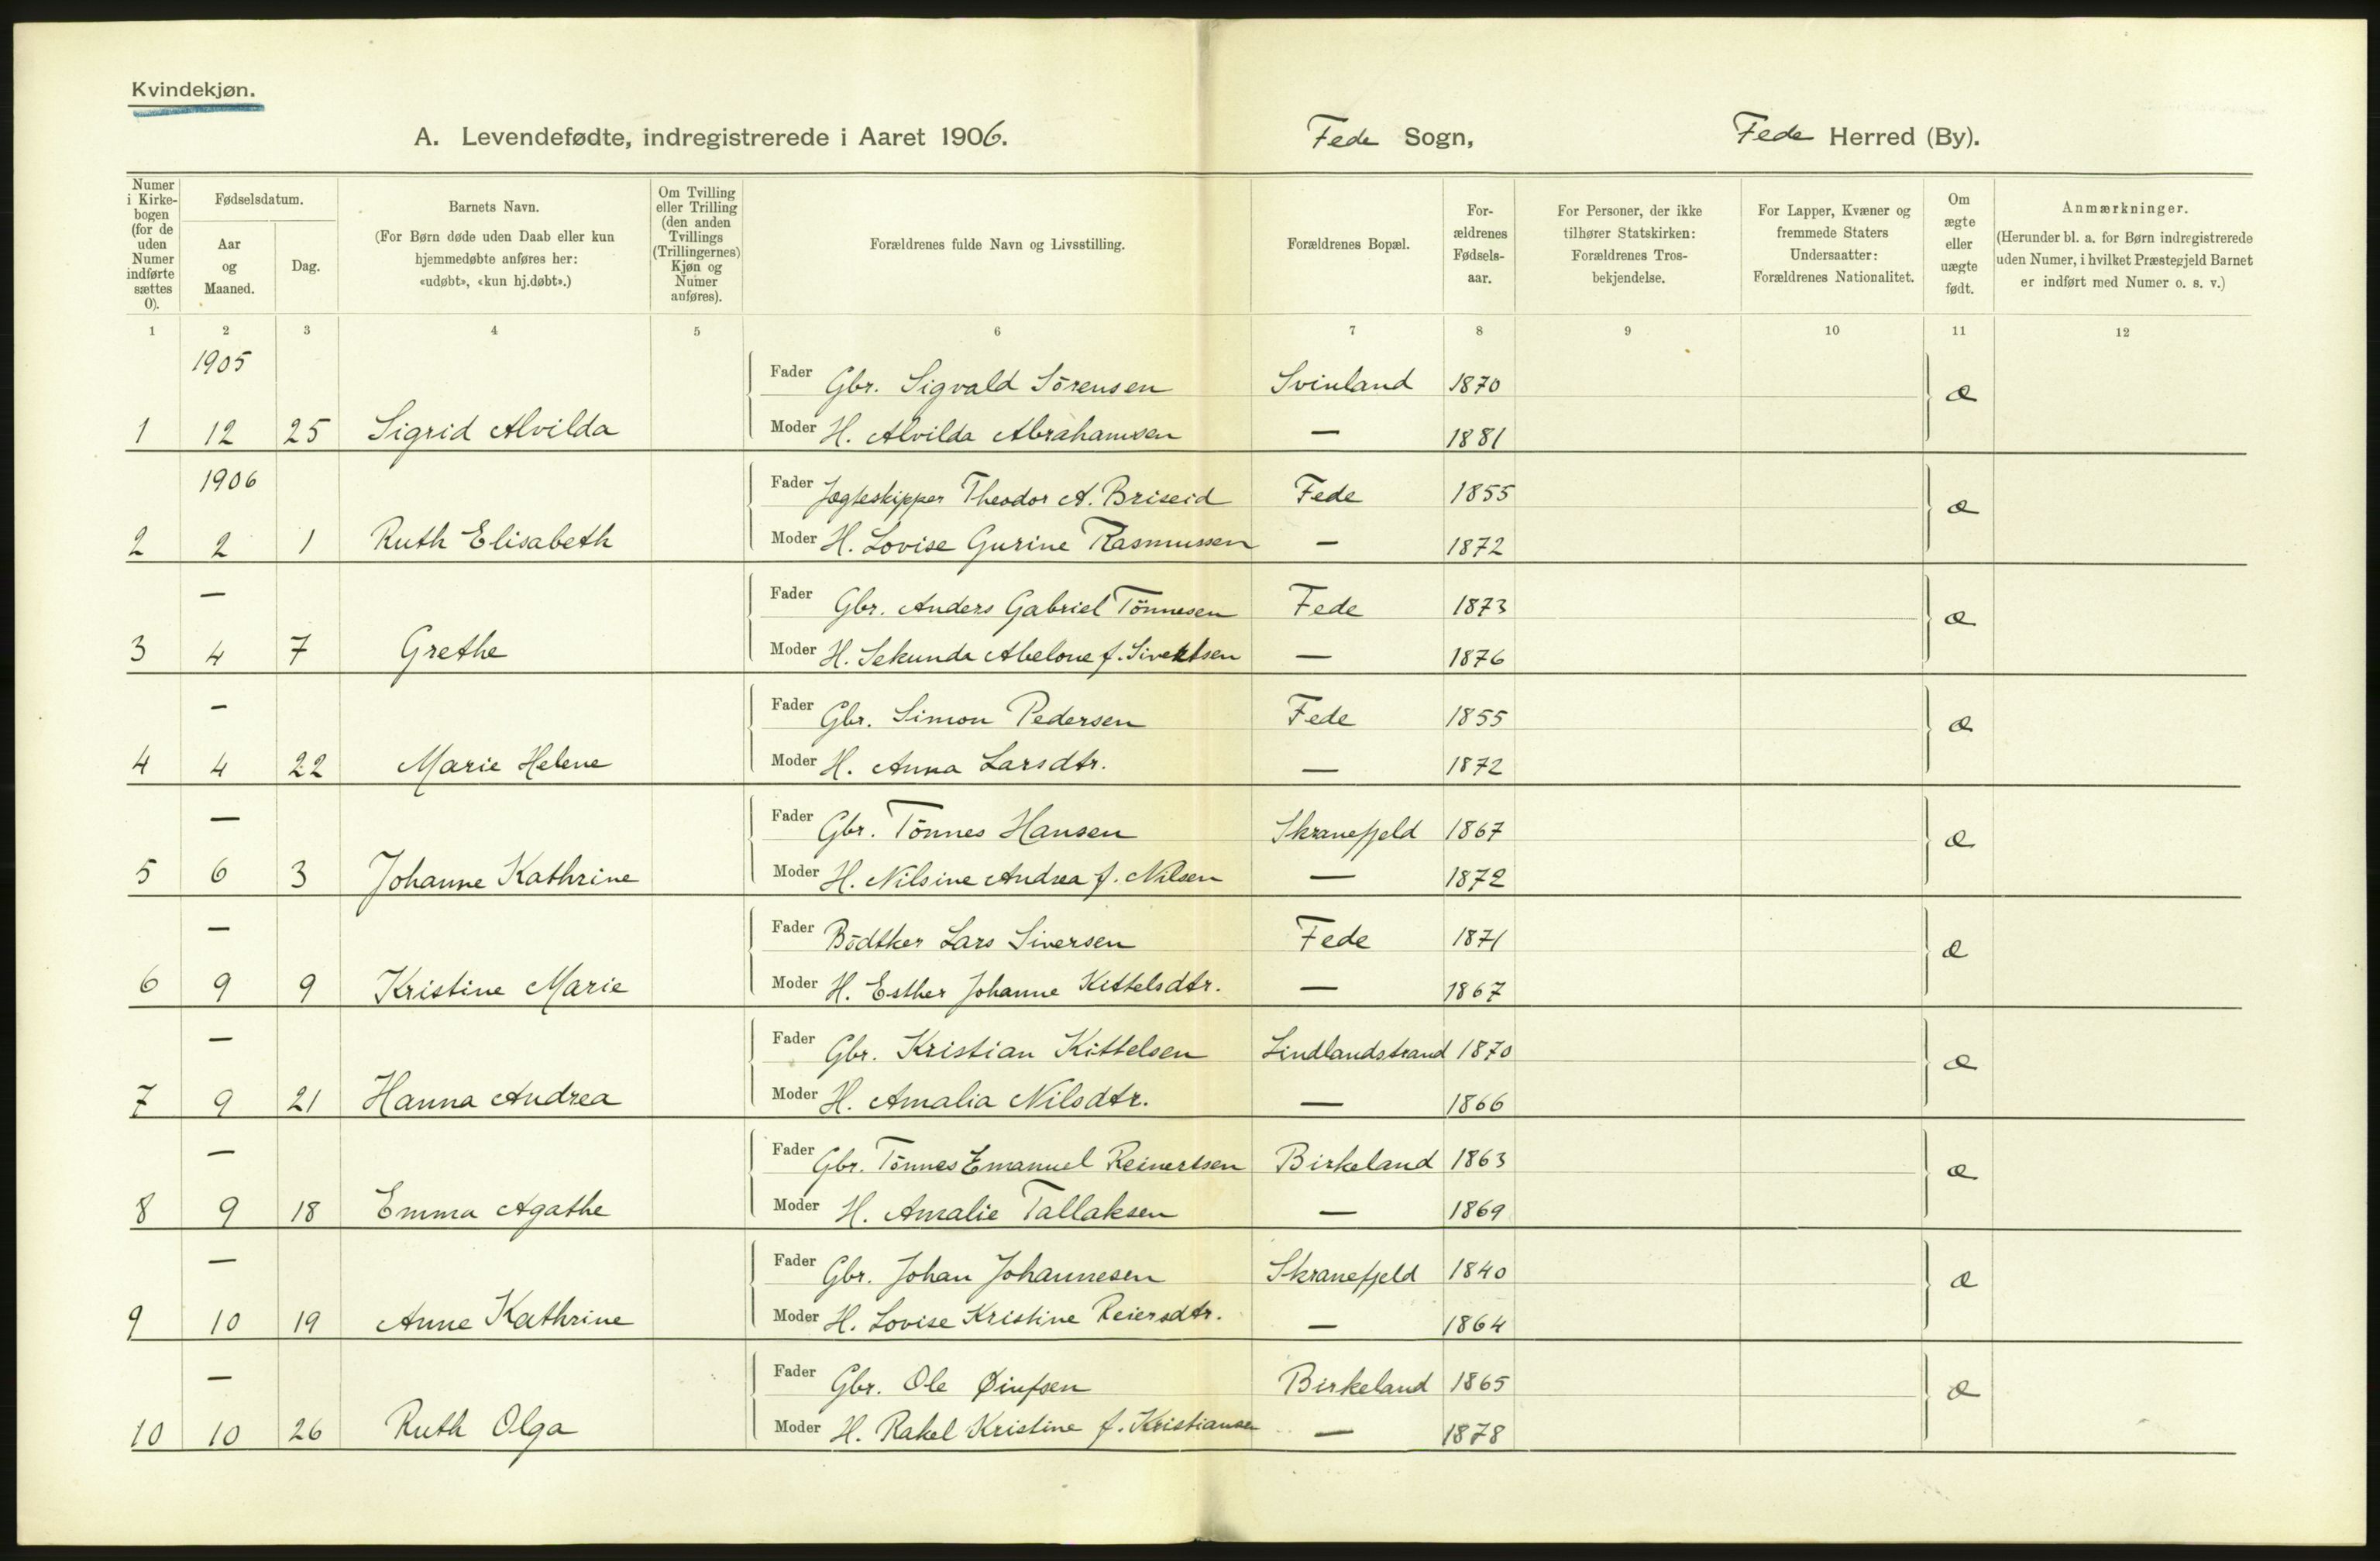 Kvindekjøn.
A. Levendefødte, indregistrerede i Aaret 1906. Fede Sogn, Fede Herred (By).
Numer i Kirkebogen (for de uden Numer indførte sættes 0).
Fødselsdatum.
Aar og Maaned.
Dag.
Barnets Navn.
(For Børn døde uden Daab eller kun hjemmedøbte anføres her: «udøbt», «kun hj.døbt».)
Om Tvilling eller Trilling (den anden Tvillings (Trillingernes) Kjøn og Numer anføres).
Forældrenes fulde Navn og Livsstilling.
Forældrenes Bopæl.
For-ældrenes Fødsels-aar.
For Personer, der ikke tilhører Statskirken: Forældrenes Tros-bekjendelse.
For Lapper, Kvæner og fremmede Staters Undersaatter: Forældrenes Nationalitet.
Om ægte eller uægte født.
Anmærkninger.
(Herunder bl. a. for Børn indregistrerede uden Numer, i hvilket Præstegjeld Barnet er indført med Numer o. s. v.)
1 2 3 4 5 6 7 8 9 10 11 12
1905 Fader Gbr. Sigvald Sörensen Svinland 1870 æ
1 12 25 Sigrid Alvilda Moder H. Alvilda Abrahamsen — 1881
1906 Fader Jægteskipper Theodor A. Briseid Fede 1855 æ
2 2 1 Ruth Elisabeth Moder H. Lovise Gurine Rasmussen — 1872
— Fader Gbr. Anders Gabriel Tönnesen Fede 1873 æ
3 4 7 Grethe Moder H. Sekunda Abelone f. Sivertsen — 1876
— Fader Gbr. Simon Pedersen Fede 1855 æ
4 4 22 Marie Helene Moder H. Anna Larsdtr. — 1872
— Fader Gbr. Tönnes Hansen Skranefjeld 1867 æ
5 6 3 Johanne Kathrine Moder H. Nilsine Andrea f. Nilsen — 1872
— Fader Bödtker Lars Siversen Fede 1871 æ
6 9 9 Kristine Marie Moder H. Esther Johanne Kittelsdtr. — 1867
— Fader Gbr. Kristian Kittelsen Lindlandstrand 1870 æ
7 9 21 Hanna Andrea Moder H. Amalia Nilsdtr. — 1866
— Fader Gbr. Tönnes Emanuel Reinertsen Birkeland 1863 æ
8 9 18 Emma Agathe Moder H. Amalie Tallaksen — 1869
— Fader Gbr. Johan Johannesen Skranefjeld 1840 æ
9 10 19 Anne Kathrine Moder H. Lovise Kristine Reiersdtr. — 1864
— Fader Gbr. Ole Birkeland 1865 æ
10 10 26 Ruth Olga Moder H. Rakel Kristine f. Kristiansen — 1878